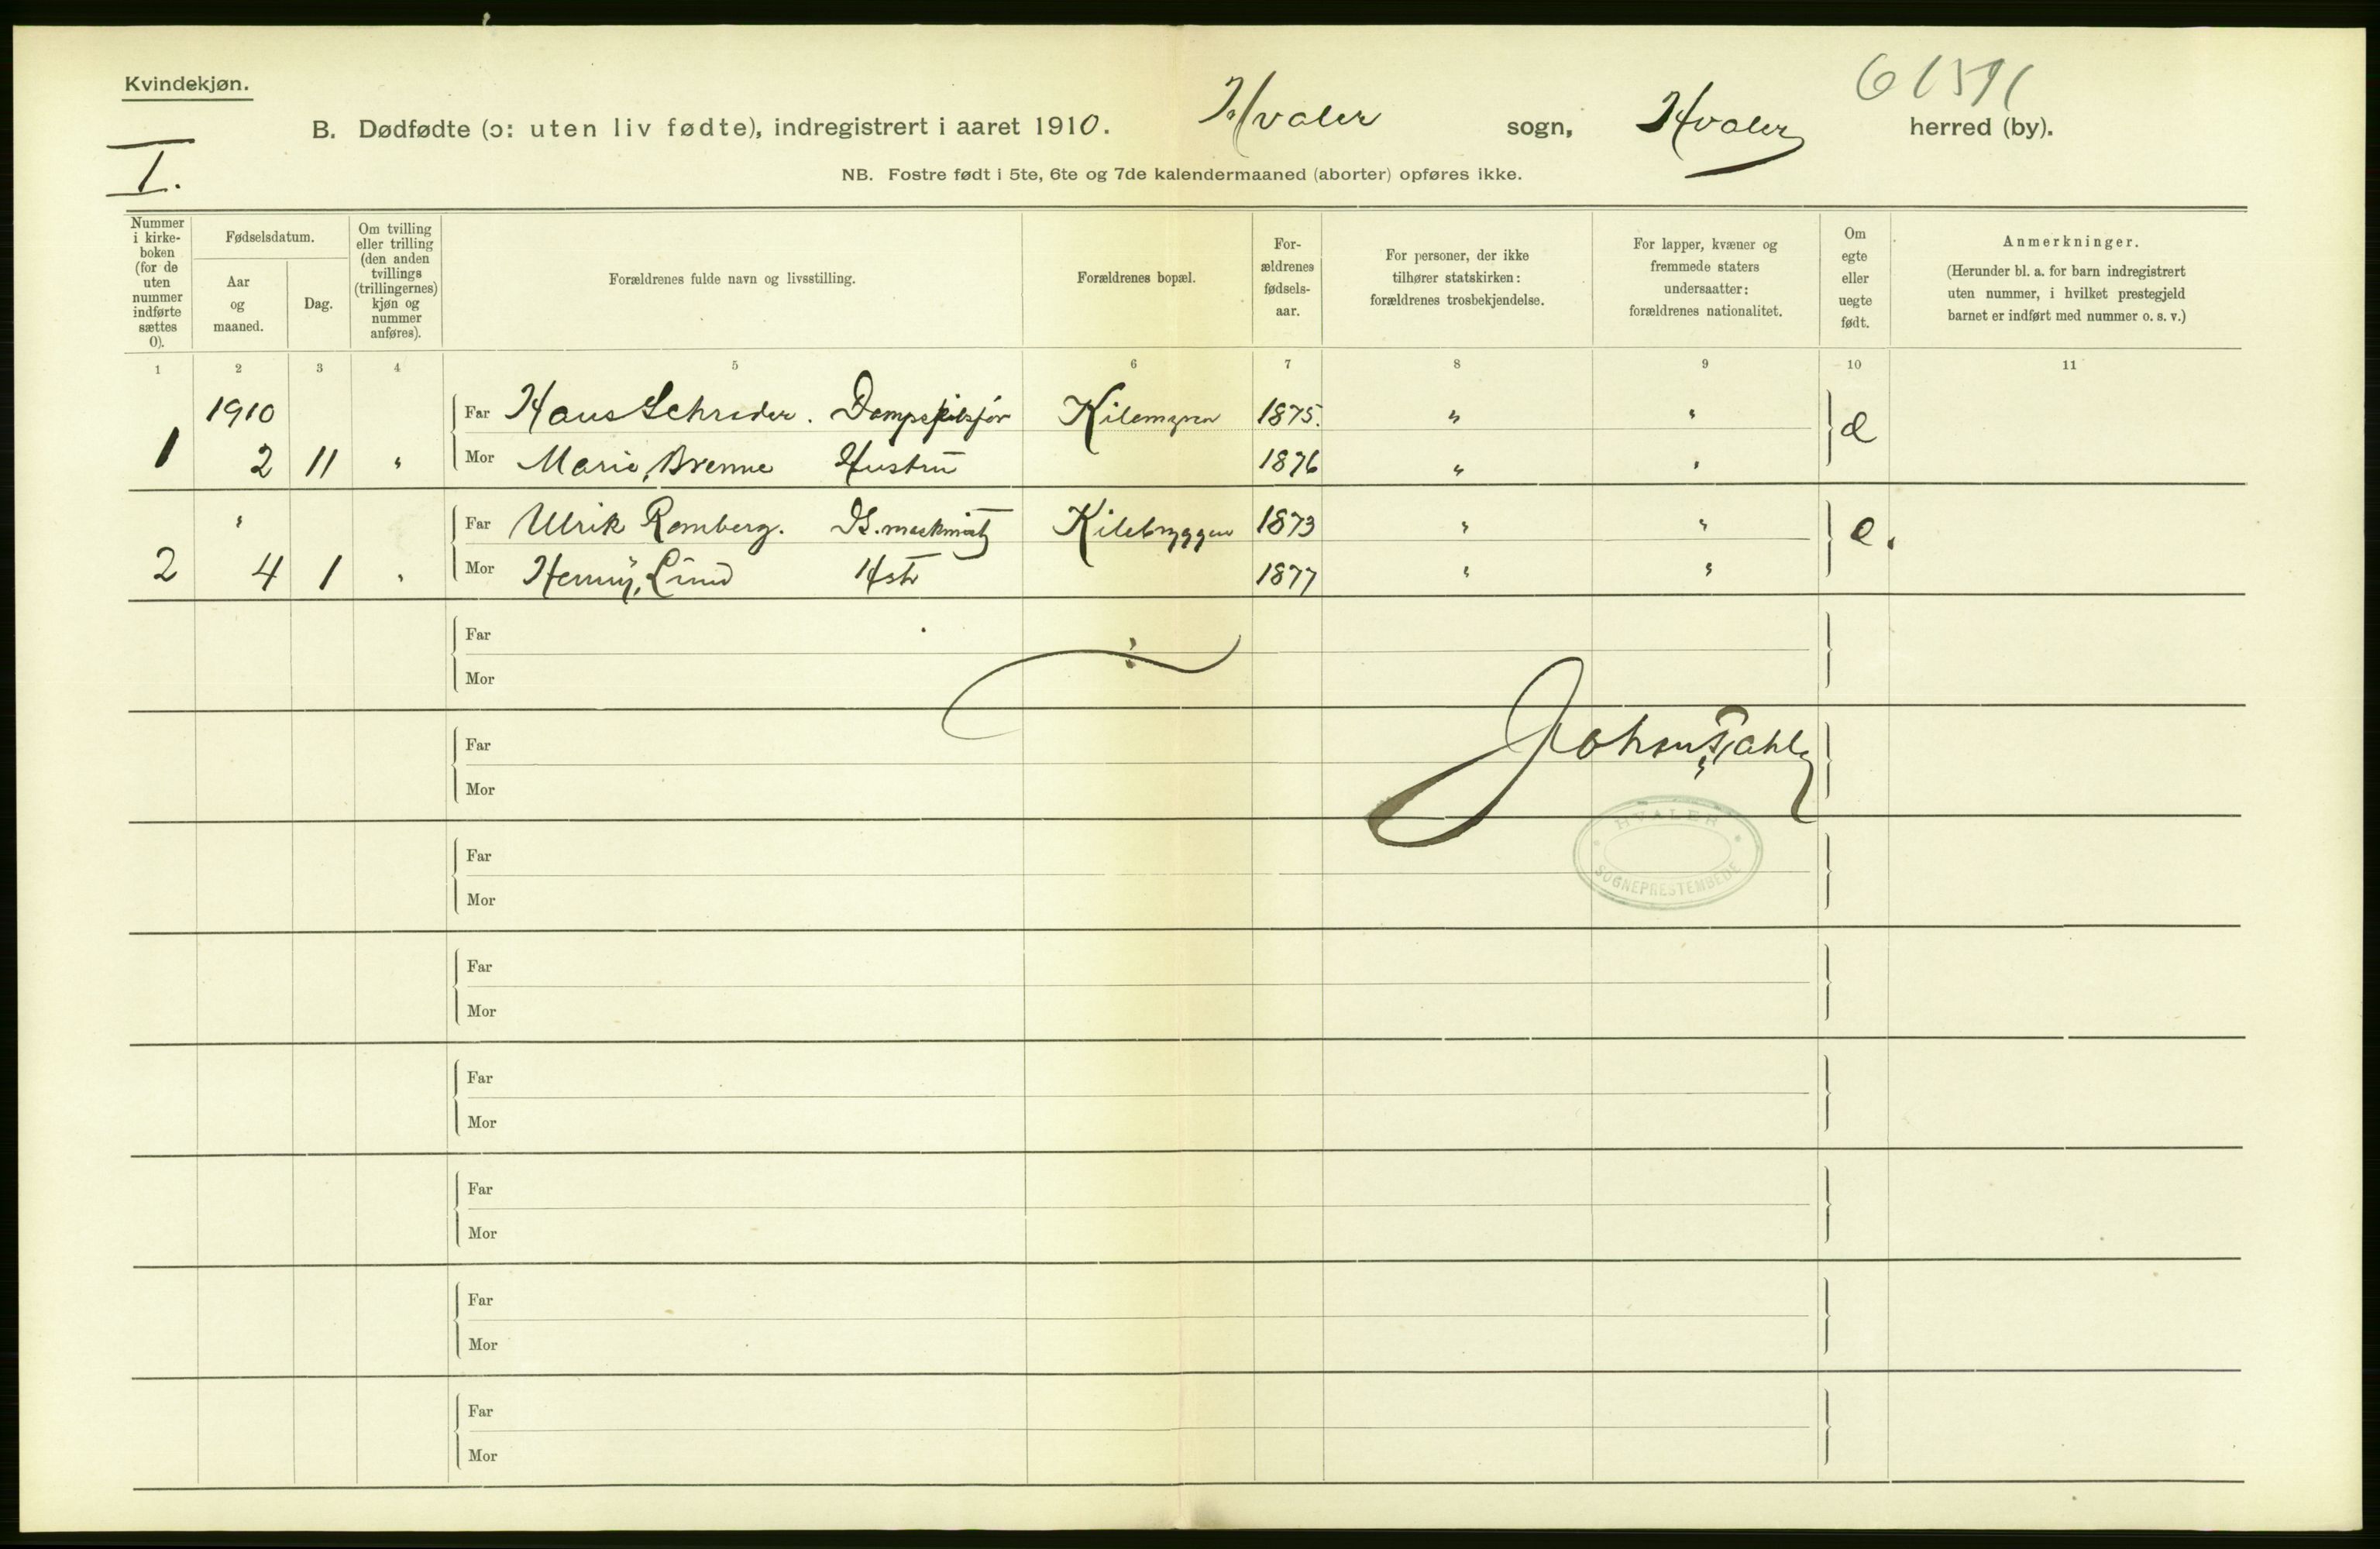 Kvindekjøn.
61591
B. Dødfødte (ɔ: uten liv fødte), indregistrert i aaret 1910. Hvaler sogn, Hvaler herred (by).
I.
NB. Fostre født i 5te, 6te og 7de kalendermaaned (aborter) opføres ikke.
Nummer
i kirke-
boken
(for de
uten
nummer
indførte
sættes
0).
Fødselsdatum.
Aar
og
maaned.
Dag.
Om tvilling
eller trilling
(den anden
tvillings
(trillingernes)
kjøn og
nummer
anføres).
Forældrenes fulde navn og livsstilling.
Forældrenes bopæl.
For-
ældrenes
fødsels-
aar.
For personer, der ikke
tilhører statskirken:
forældrenes trosbekjendelse.
For lapper, kvæner og
fremmede staters
undersaatter:
forældrenes nationalitet.
Om
egte
eller
uegte
født.
Anmerkninger.
(Herunder bl. a. for barn indregistrert
uten nummer, i hvilket prestegjeld
barnet er indført med nummer o. s. v.)
1 2 3 4 5 6 7 8 9 10 11
1910 Far Hans Schrøder. 1875. " "
1 2 11 " Mor Marie, Brenne Hustru 1876 " " e
" Far Ulrik Romberg. Kilebryggen 1873 " "
2 4 1 " Mor Henny, Lund Hstr 1877 " " e.
Far
Mor
Far
Johan
Mor
HVALER
SOGNEPRESTEMBEDE
Far
Mor
Far
Mor
Far
Mor
Far
Mor
Far
Mor
Far
Mor